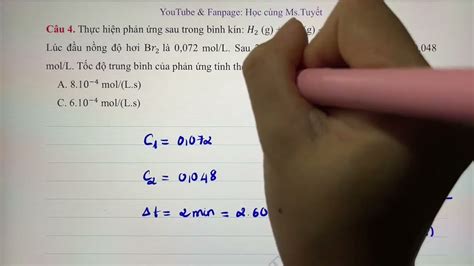 YouTube & Fanpage: Học cùng Ms.Tuyết
Câu 4. Thực hiện phản ứng sau trong bình kín: H₂ (g) (g)
Lúc đầu nồng độ hơi Br₂ là 0,072 mol/L. Sau ,048
mol/L. Tốc độ trung bình của phản ứng tính th
A. 8.10⁻⁴ mol/(L.s)
C. 6.10⁻⁴ mol/(L.s)
C₁ = 0,072
C₂ = 0,048
Δt = 2 min = 2.60